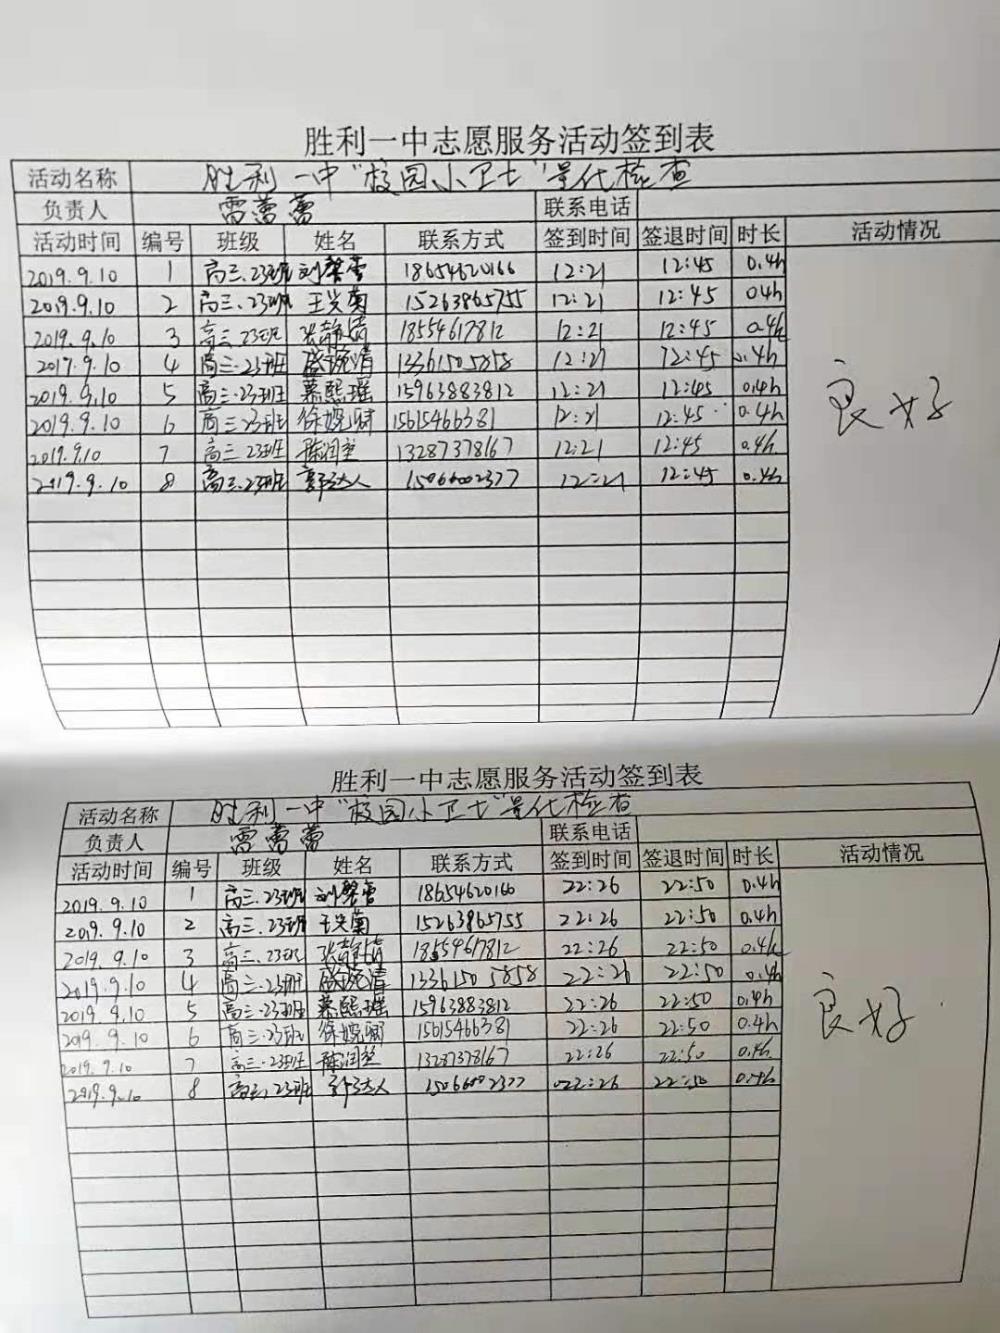 胜利一中志愿服务活动签到表
活动名称 胜利一中"校园小卫士"量化检查
负责人 雷蕾蕾 联系电话
活动时间 编号 班级 姓名 联系方式 签到时间 签退时间 时长 活动情况
2019.9.10 1 高三.23班 刘馨蕾 18654620166 12:21 12:45 0.4h
2019.9.10 2 高三.23班 王兴菊 15263865755 12:21 12:45 0.4h
2019.9.10 3 高三23班 张静婧 18554617812 12:21 12:45 0.4h
2019.9.10 4 高三.23班 13361505858 12:21 12:45 0.4h
2019.9.10 5 高三.23班 慕熙瑶 15963883812 12:21 12:45 0.4h
良好
2019.9.10 6 高三23班 徐婉 15615466381 12:21 12:45 0.4h
2019.9.10 7 高三23班 陈润 13287378167 12:21 12:45 0.4h
2019.9.10 8 高三.23班 郭达人 15066002377 12:21 12:45 0.4h
胜利一中志愿服务活动签到表
活动名称 胜利一中"校园小卫士"量化检查
负责人 雷蕾蕾 联系电话
活动时间 编号 班级 姓名 联系方式 签到时间 签退时间 时长 活动情况
2019.9.10 1 高三.23班 刘馨蕾 18654620166 22:26 22:50 0.4h
2019.9.10 2 高三.23班 王兴菊 15263865755 22:26 22:50 0.4h
2019.9.10 3 高三.23班 张静婧 18554617812 22:26 22:50 0.4h
2019.9.10 4 高三.23班 13361505858 22:26 22:50 0.4h
2019.9.10 5 高三.23班 慕熙瑶 15963883812 22:26 22:50 0.4h
良好
2019.9.10 6 高三.23班 徐婉 15615466381 22:26 22:50 0.4h
2019.9.10 7 高三.23班 陈润 13287378167 22:26 22:50 0.4h
2019.9.10 8 高三.23班 郭达人 15066002377 22:26 22:50 0.4h